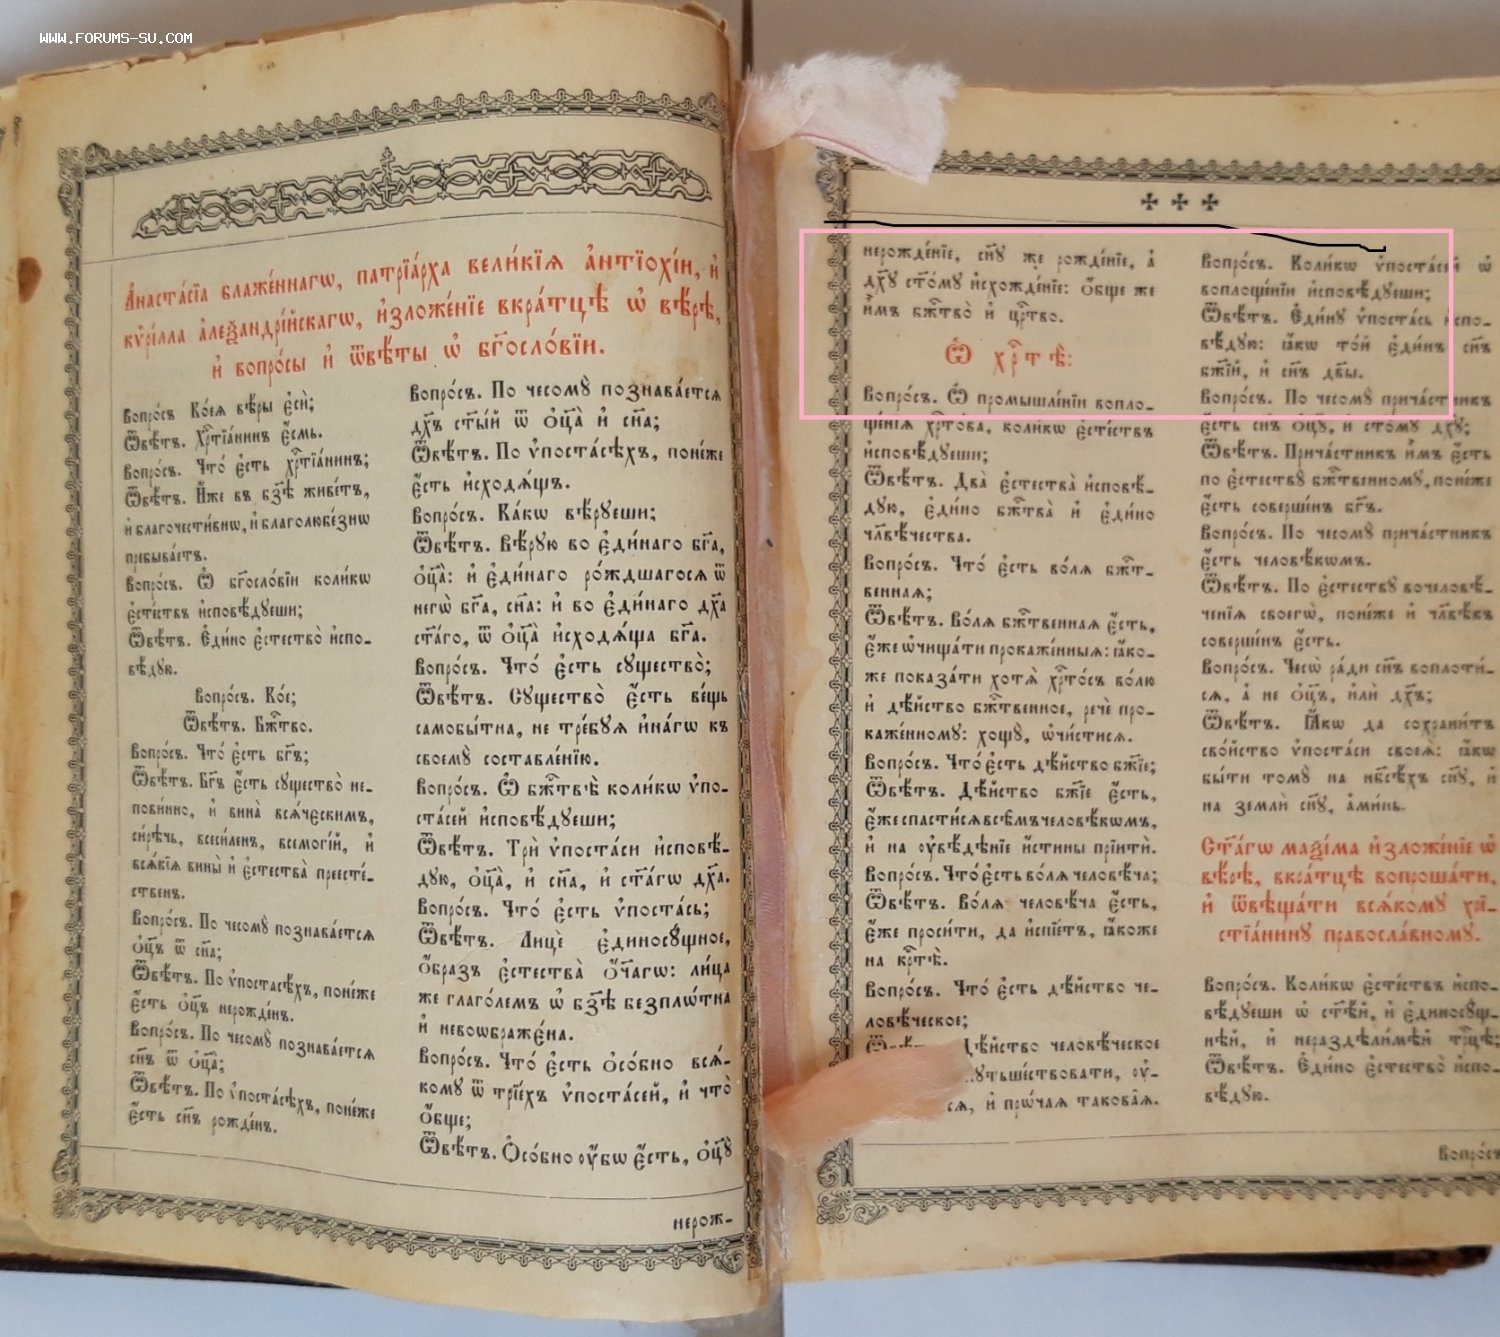 WWW.FORUMS-SU.COM
А҆наста́сїа блаже́ннагѡ, патрїа́рха вели́кїѧ а҆нтїохі́и, и҆
кѷрі́лла а҆леѯандрі́йскагѡ, и҆зложе́нїе вкра́тцѣ ѡ҆ вѣ́рѣ,
и҆ вопро́сы и҆ ѿвѣ́ты ѡ҆ бг҃осло́вїи.
Вопро́съ Ко́еѧ вѣ́ры є҆сѝ;
Ѿвѣ́тъ. Хрⷭ҇тїа́нинъ є҆́смь.
Вопро́съ. Что́ є҆сть хрⷭ҇тїа́нинъ;
Ѿвѣ́тъ. И҆́же въ бз҃ѣ живе́тъ,
и҆ благочести́внѡ, и҆ благолюбе́знѡ
пребыва́етъ.
Вопро́съ. Ѽ бг҃осло́вїи коли́кѡ
є҆сте́ствъ и҆сповѣ́дꙋеши;
Ѿвѣ́тъ. Е҆ди́но є҆стество̀ и҆спо-
вѣ́дꙋю.
Вопро́съ. Ко́е;
Ѿвѣ́тъ. Бжⷭ҇тво.
Вопро́съ. Что́ є҆сть бг҃ъ;
Ѿвѣ́тъ. Бг҃ъ є҆́сть сꙋщество̀ не-
пови́нно, и҆ вина̀ всѧ́ческимъ,
си́рѣчь, всеси́ленъ, всемогі́й, и҆
всѧ́кїѧ вины̀ и҆ є҆стества̀ преесте́-
ственъ.
Вопро́съ. По чесомꙋ̀ познава́етсѧ
ѻ҆ц҃ъ ѿ сн҃а;
Ѿвѣ́тъ. По ѵ҆поста́сѣхъ, поне́же
є҆́сть ѻ҆ц҃ъ нерожде́нъ.
Вопро́съ. По чесомꙋ̀ познава́етсѧ
сн҃ъ ѿ ѻ҆ц҃а̀;
Ѿвѣ́тъ. По ѵ҆поста́сѣхъ, поне́же
є҆́сть сн҃ъ рожде́нъ.
Вопро́съ. По чесомꙋ̀ познава́етсѧ
дх҃ъ ст҃ы́й ѿ ѻ҆ц҃а̀ и҆ сн҃а;
Ѿвѣ́тъ. По ѵ҆поста́сѣхъ, поне́же
є҆́сть и҆сходѧ́щъ.
Вопро́съ. Ка́кѡ вѣ́рꙋеши;
Ѿвѣ́тъ. Вѣ́рꙋю во є҆ди́наго бг҃а,
ѻ҆ц҃а̀: и҆ є҆ди́наго ро́ждшагосѧ ѿ
негѡ̀ бг҃а, сн҃а: и҆ во є҆ди́наго дх҃а
ст҃а́го, ѿ ѻ҆ц҃а̀ и҆сходѧ́ща бг҃а.
Вопро́съ. Что́ є҆сть сꙋщество̀;
Ѿвѣ́тъ. Сꙋщество̀ є҆́сть ве́щь
самобы́тна, не тре́бꙋѧ и҆на́гѡ къ
своемꙋ̀ составле́нїю.
Вопро́съ. Ѽ бжⷭ҇твѣ̀ коли́кѡ ѵ҆по-
ста́сей и҆сповѣ́дꙋеши;
Ѿвѣ́тъ. Трѝ ѵ҆поста́си и҆сповѣ́-
дꙋю, ѻ҆ц҃а̀, и҆ сн҃а, и҆ ст҃а́гѡ дх҃а.
Вопро́съ. Что́ є҆сть ѵ҆поста́сь;
Ѿвѣ́тъ. Лицѐ є҆диносꙋ́щное,
ѻ҆́бразъ є҆стества̀ ѻ҆́ч҃агѡ: ли́ца
же глаго́лемъ ѡ҆ бз҃ѣ безпло́тна
и҆ невоѡбраже́на.
Вопро́съ. Что́ є҆сть ѻ҆со́бно всѧ́-
комꙋ ѿ трїе́хъ ѵ҆поста́сей, и҆ что̀
ѻ҆́бще;
Ѿвѣ́тъ. Ѻ҆со́бно ᲂу҆́бѡ є҆́сть, ѻ҆ц҃ꙋ̀
нерож-
нерожде́нїе, сн҃ꙋ же рожде́нїе, а҆
дх҃ꙋ ст҃о́мꙋ и҆схожде́нїе: ѻ҆́бще же
и҆̀мъ бжⷭ҇тво̀ и҆ црⷭ҇тво.
Ѽ хрⷭ҇тѣ̀:
Вопро́съ. Ѽ промышле́нїи вопло-
ще́нїѧ хрⷭ҇това, коли́кѡ є҆сте́ствъ
и҆сповѣ́дꙋеши;
Ѿвѣ́тъ. Два̀ є҆стества̀ и҆сповѣ́-
дꙋю, є҆ди́но бжⷭ҇тва̀ и҆ є҆ди́но
чл҃вѣ́чества.
Вопро́съ. Что́ є҆сть во́лѧ бжⷭ҇т-
веннаѧ;
Ѿвѣ́тъ. Во́лѧ бжⷭ҇твеннаѧ є҆́сть,
є҆́же ѡ҆чища́ти прокаже́нныѧ: ꙗ҆́ко-
же показа́ти хотѧ̀ хрⷭ҇то́съ во́лю
и҆ дѣ́йство бжⷭ҇твенное, речѐ про-
каже́нномꙋ: хощꙋ̀, ѡ҆чи́стисѧ.
Вопро́съ. Что́ є҆сть дѣ́йство бж҃їе;
Ѿвѣ́тъ. Дѣ́йство бж҃їе є҆́сть,
є҆́же спасти́сѧ всѣ́мъ человѣ́кѡмъ,
и҆ на ᲂувѣ́дѣнїе и҆́стины прїитѝ.
Вопро́съ. Что́ є҆сть во́лѧ человѣ́ча;
Ѿвѣ́тъ. Во́лѧ человѣ́ча є҆́сть,
є҆́же проси́ти, да и҆спїе́тъ, ꙗ҆́коже
на крⷭ҇тѣ̀.
Вопро́съ. Что́ є҆сть дѣ́йство че-
ловѣ́ческое;
Дѣ́йство человѣ́ческое
ꙋтьше́ствовати, ᲂу҆-
сѧ, и҆ прѡ́чаѧ такова́ѧ.
Вопро́съ. Коли́кѡ ѵ҆поста́сей ѡ҆
воплоще́нїи и҆сповѣ́дꙋеши;
Ѿвѣ́тъ. Е҆ди́нꙋ ѵ҆поста́сь и҆спо-
вѣ́дꙋю: ꙗ҆́кѡ то́й є҆ди́нъ сн҃ъ
бж҃їй, и҆ сн҃ъ дв҃ы.
Вопро́съ. По чесомꙋ̀ прича́стникъ
є҆́сть сн҃ъ ѻ҆ц҃ꙋ̀, и҆ ст҃о́мꙋ дх҃ꙋ;
Ѿвѣ́тъ. Прича́стникъ и҆̀мъ є҆́сть
по є҆стествꙋ̀ бжⷭ҇твенномꙋ, поне́же
є҆́сть соверше́нъ бг҃ъ.
Вопро́съ. По чесомꙋ̀ прича́стникъ
є҆́сть человѣ́кѡмъ.
Ѿвѣ́тъ. По є҆стествꙋ̀ вочеловѣ́-
ченїѧ своегѡ̀, поне́же и҆ чл҃вѣ́къ
соверше́нъ є҆́сть.
Вопро́съ. Чесѡ̀ ра́ди сн҃ъ воплоти́-
сѧ, а҆ не ѻ҆ц҃ъ, и҆лѝ дх҃ъ;
Ѿвѣ́тъ. Ꙗ҆́кѡ да сохрани́тъ
сво́йство ѵ҆поста́си своеѧ̀: ꙗ҆́кѡ
бы́ти томꙋ̀ на нб҃сѣ́хъ сн҃ꙋ, и҆
на землѝ сн҃ꙋ, а҆ми́нь.
Ст҃а́гѡ маѯі́ма и҆зложе́нїе ѡ҆
вѣ́рѣ, вкра́тцѣ вопроша́ти,
и҆ ѿвѣща́ти всѧ́комꙋ хрⷭ҇-
тїа́нинꙋ правосла́вномꙋ.
Вопро́съ. Коли́кѡ є҆сте́ствъ и҆спо-
вѣ́дꙋеши ѡ҆ ст҃ѣ́й, и҆ є҆диносꙋ́щ-
нѣй, и҆ нераздѣли́мѣй трⷪ҇цѣ;
Ѿвѣ́тъ. Е҆ди́но є҆стество̀ и҆спо-
вѣ́дꙋю.
Вопро́съ